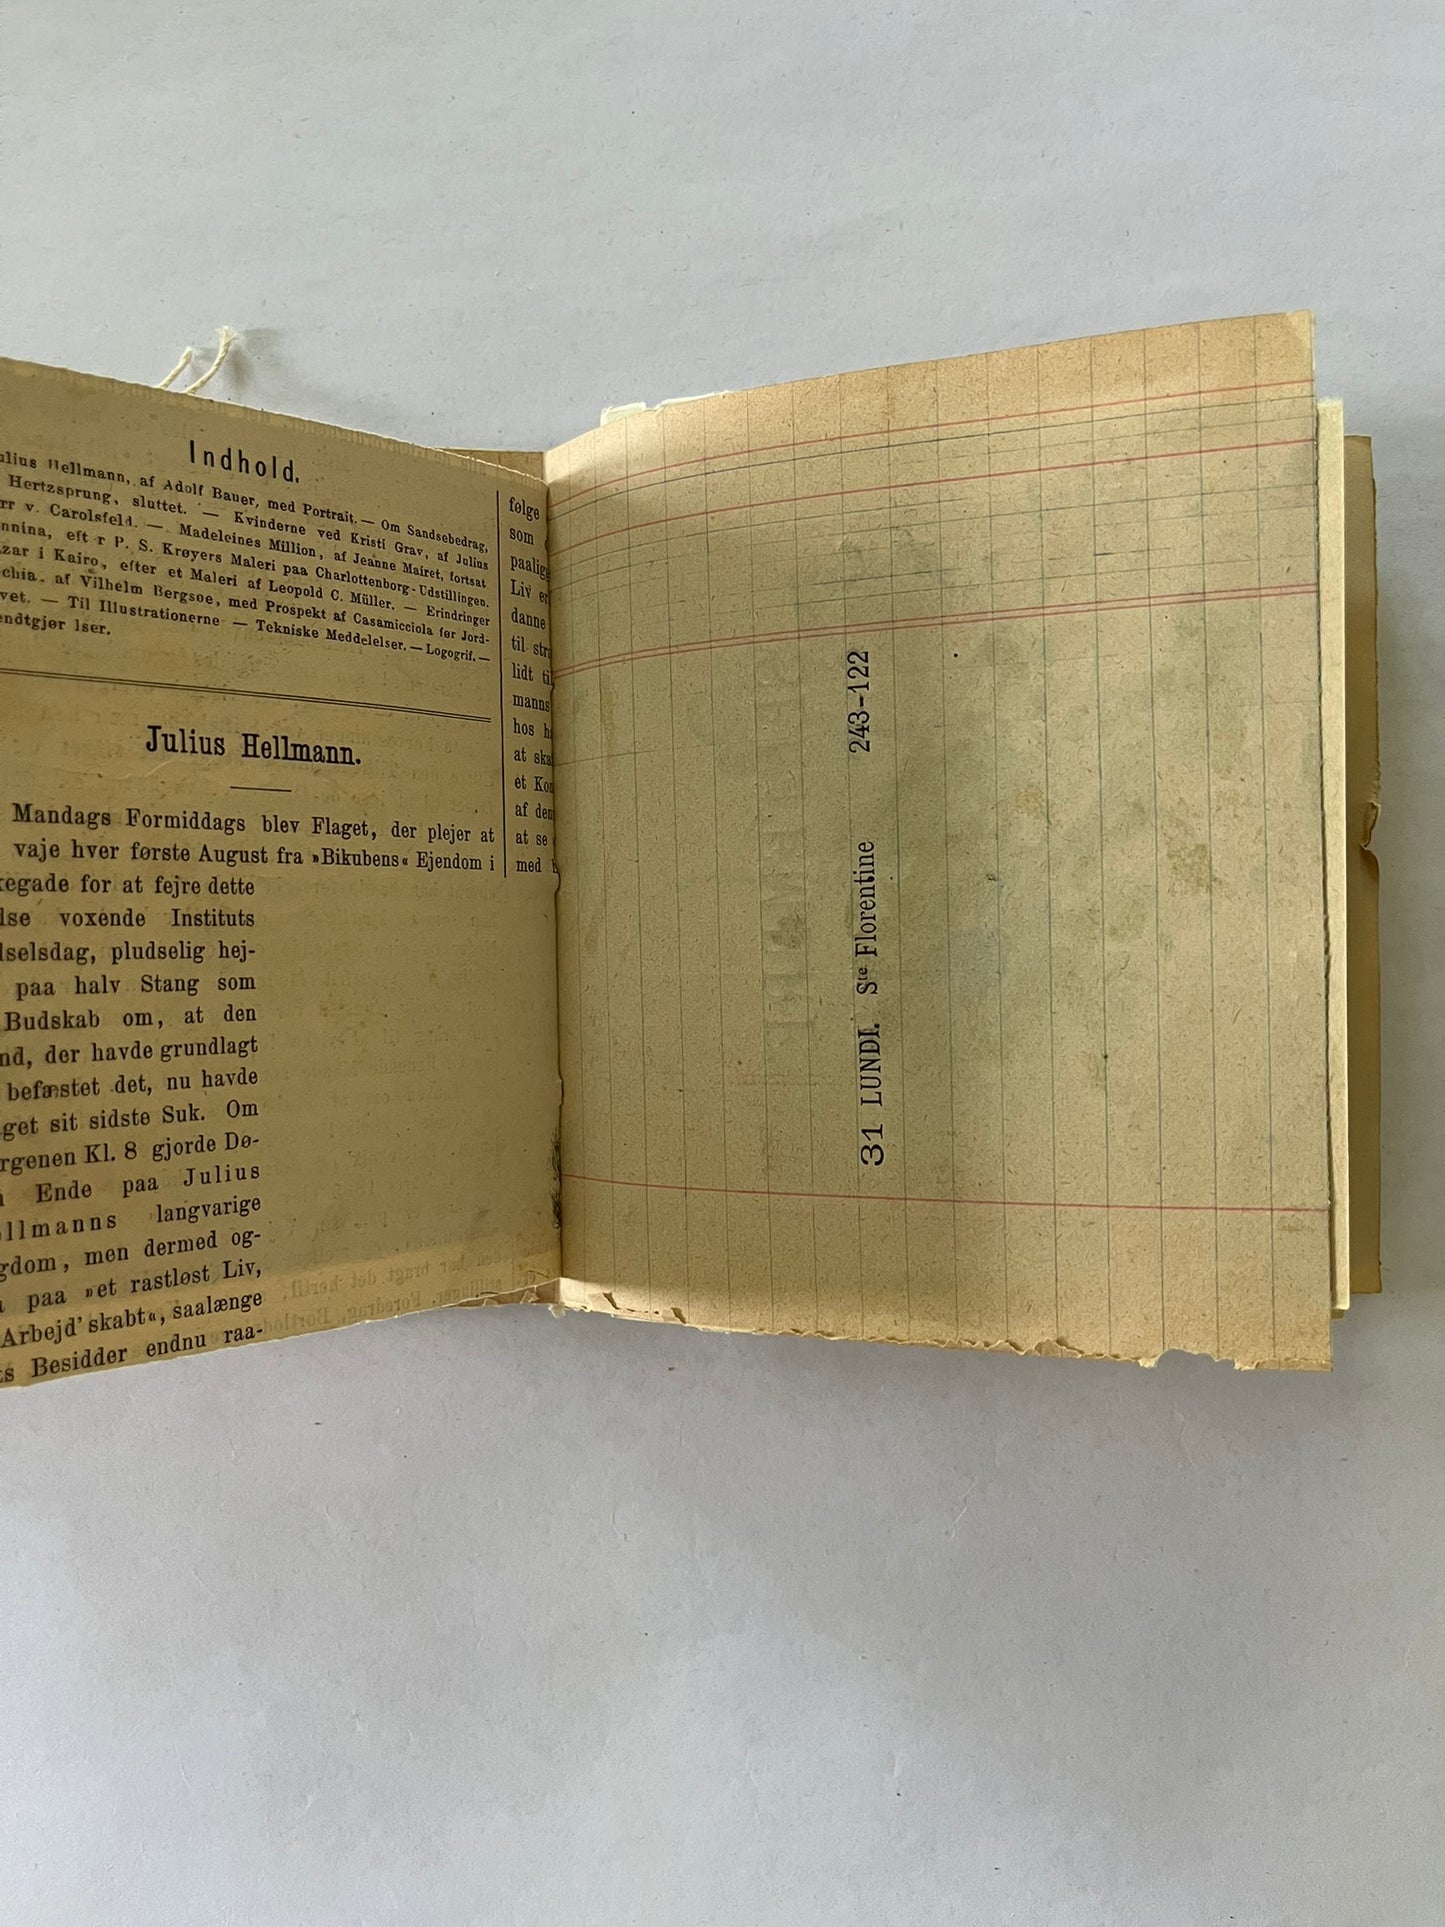 Indhold.
Julius Hellmann, af Adolf Bauer, med Portrait. — Om Sandsebedrag,
Hertzsprung, sluttet. — Kvinderne ved Kristi Grav, af Julius
v. Carolsfeld. — Madeleines Million, af Jeanne Mairet, fortsat
eft r P. S. Krøyers Maleri paa Charlottenborg-Udstillingen.
i Kairo, efter et Maleri af Leopold C. Müller. — Erindringer
af Vilhelm Bergsøe, med Prospekt af Casamicciola før Jord-
— Til Illustrationerne — Tekniske Meddelelser. — Logogrif. —
Julius Hellmann.
Mandags Formiddags blev Flaget, der plejer at
vaje hver første August fra »Bikubens« Ejendom i
for at fejre dette
voxende Instituts
pludselig hej-
paa halv Stang som
Budskab om, at den
der havde grundlagt
befæstet det, nu havde
sit sidste Suk. Om
Kl. 8 gjorde Dø-
Ende paa Julius
langvarige
men dermed og-
paa »et rastløst Liv,
Arbejd' skabt«, saalænge
Besidder endnu raa-
følge
som
Liv
danne
til
lidt
hos
at
et
af
at se
med
31 LUNDI. Ste Florentine 243-122